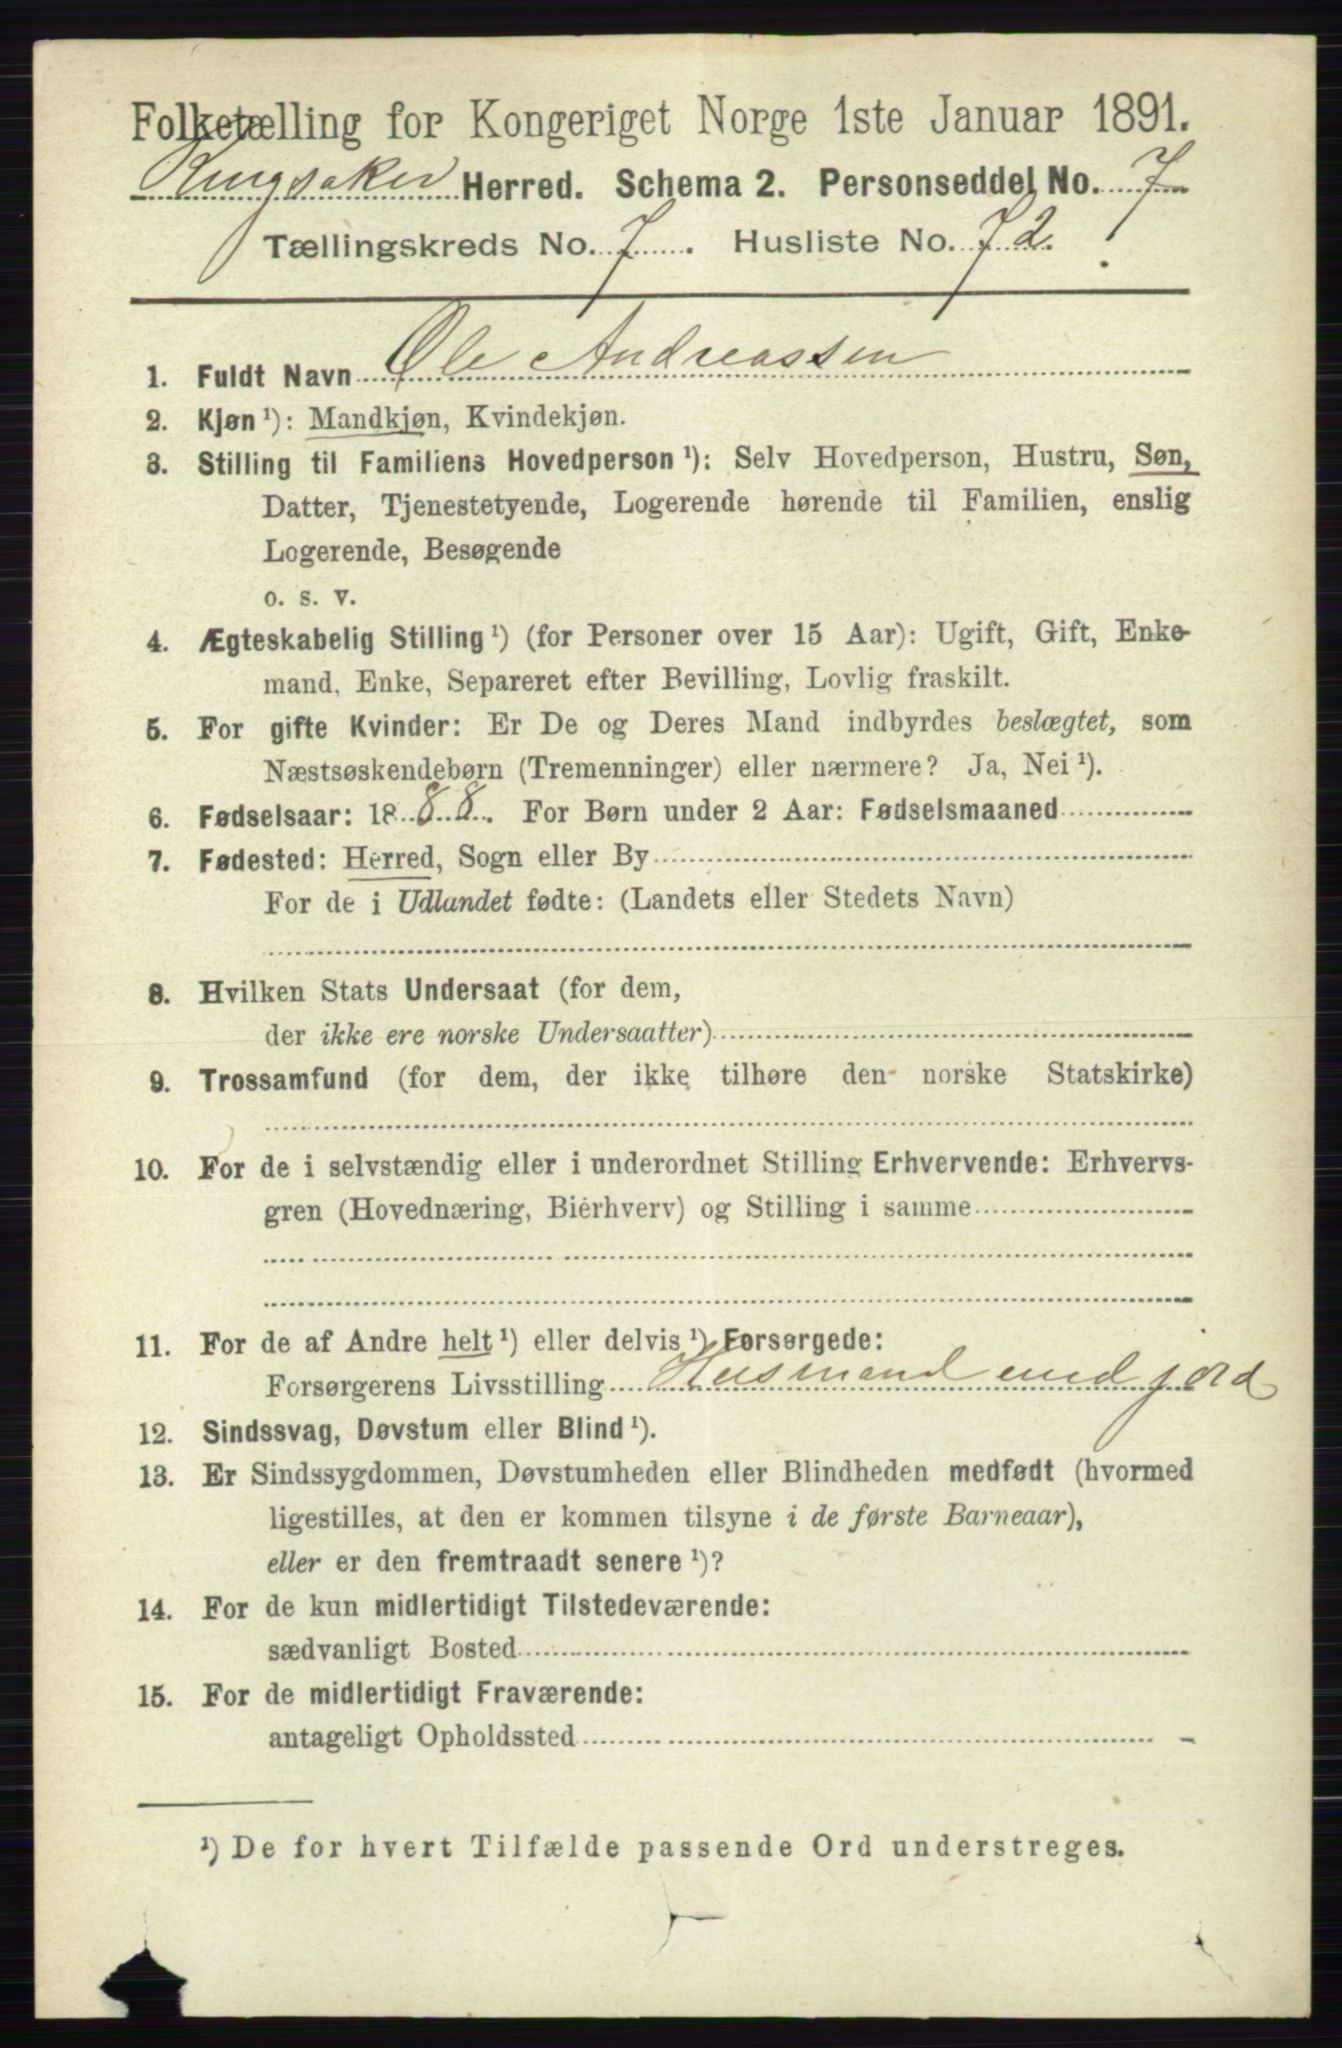 Folketælling for Kongeriget Norge 1ste Januar 1891.
Ringsaker Herred. Schema 2. Personseddel No. 7
Tællingskreds No. 7. Husliste No. 72.
1. Fuldt Navn Ole Andreassen
2. Kjøn¹): Mandkjøn, Kvindekjøn.
3. Stilling til Familiens Hovedperson¹): Selv Hovedperson, Hustru, Søn,
Datter, Tjenestetyende, Logerende hørende til Familien, enslig
Logerende, Besøgende
o. s. v.
4. Ægteskabelig Stilling¹) (for Personer over 15 Aar): Ugift, Gift, Enke-
mand, Enke, Separeret efter Bevilling, Lovlig fraskilt.
5. For gifte Kvinder: Er De og Deres Mand indbyrdes beslægtet, som
Næstsøskendebørn (Tremenninger) eller nærmere? Ja, Nei¹).
6. Fødselsaar: 1888. For Børn under 2 Aar: Fødselsmaaned
7. Fødested: Herred, Sogn eller By
For de i Udlandet fødte: (Landets eller Stedets Navn)
8. Hvilken Stats Undersaat (for dem,
der ikke ere norske Undersaatter)
9. Trossamfund (for dem, der ikke tilhøre den norske Statskirke)
10. For de i selvstændig eller i underordnet Stilling Erhvervende: Erhvervs-
gren (Hovednæring, Bierhverv) og Stilling i samme
11. For de af Andre helt¹) eller delvis¹) Forsørgede:
Forsørgerens Livsstilling Husmand med jord
12. Sindssvag, Døvstum eller Blind¹).
13. Er Sindssygdommen, Døvstumheden eller Blindheden medfødt (hvormed
ligestilles, at den er kommen tilsyne i de første Barneaar),
eller er den fremtraadt senere¹)?
14. For de kun midlertidigt Tilstedeværende:
sædvanligt Bosted
15. For de midlertidigt Fraværende:
antageligt Opholdssted
¹) De for hvert Tilfælde passende Ord understreges.